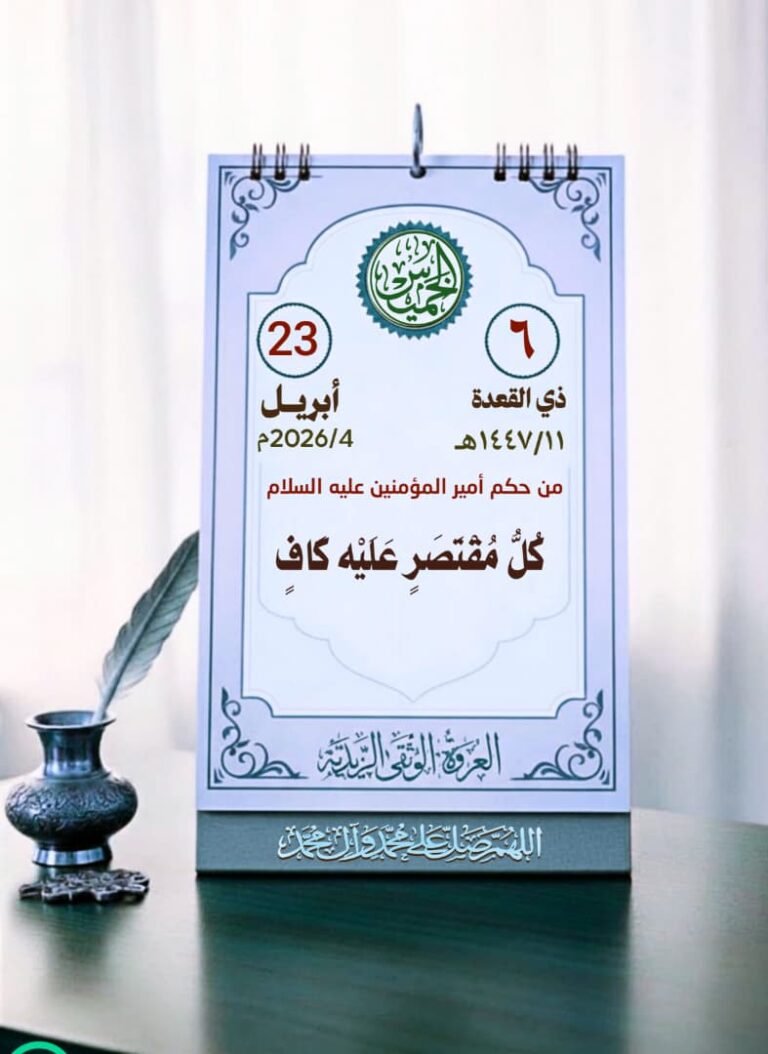 الخميس
٦
23
ذي القعدة
أبريل
١٤٤٧/١١هـ
2026/4م
من حكم أمير المؤمنين عليه السلام
كُلُّ مُقْتَصَرٍ عَلَيْه كافٍ
العروة الوثقى الزيدية
اللهم صل على محمد وآل محمد